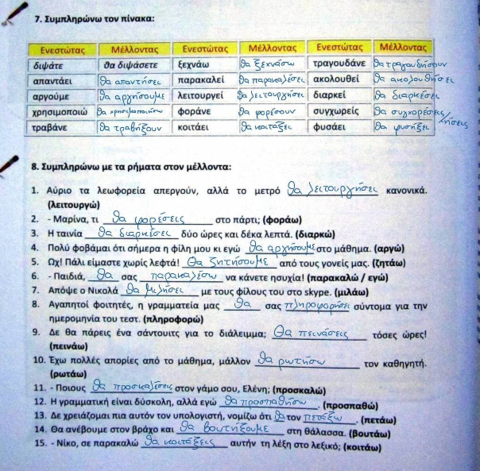 7. Συμπληρώνω τον πίνακα:
Ενεστώτας Μέλλοντας Ενεστώτας Μέλλοντας Ενεστώτας Μέλλοντας
διψάτε θα διψάσετε ξεχνάω θα ξεχάσω τραγουδάνε θα τραγουδήσουν
απαντάει θα απαντήσει παρακαλεί θα παρακαλέσει ακολουθεί θα ακολουθήσει
αργούμε θα αργήσουμε λειτουργεί θα λειτουργήσει διαρκεί θα διαρκέσει
χρησιμοποιώ θα χρησιμοποιήσω φοράνε θα φορέσουν συγχωρείς θα συγχωρέσεις/ήσεις
τραβάνε θα τραβήξουν κοιτάει θα κοιτάξει φυσάει θα φυσήξει
8. Συμπληρώνω με τα ρήματα στον μέλλοντα:
1. Αύριο τα λεωφορεία απεργούν, αλλά το μετρό θα λειτουργήσει κανονικά.
(λειτουργώ)
2. - Μαρίνα, τι θα φορέσεις στο πάρτι; (φοράω)
3. Η ταινία θα διαρκέσει δύο ώρες και δέκα λεπτά. (διαρκώ)
4. Πολύ φοβάμαι ότι σήμερα η φίλη μου κι εγώ θα αργήσουμε στο μάθημα. (αργώ)
5. Ωχ! Πάλι είμαστε χωρίς λεφτά! Θα ζητήσουμε από τους γονείς μας. (ζητάω)
6. - Παιδιά, θα σας παρακαλέσω να κάνετε ησυχία! (παρακαλώ / εγώ)
7. Απόψε ο Νικολά θα μιλήσει με τους φίλους του στο skype. (μιλάω)
8. Αγαπητοί φοιτητές, η γραμματεία μας θα σας πληροφορήσει σύντομα για την
ημερομηνία του τεστ. (πληροφορώ)
9. Δε θα πάρεις ένα σάντουιτς για το διάλειμμα; Θα πεινάσεις τόσες ώρες!
(πεινάω)
10. Έχω πολλές απορίες από το μάθημα, μάλλον θα ρωτήσω τον καθηγητή.
(ρωτάω)
11. - Ποιους θα προσκαλέσεις στον γάμο σου, Ελένη; (προσκαλώ)
12. Η γραμματική είναι δύσκολη, αλλά εγώ θα προσπαθήσω. (προσπαθώ)
13. Δε χρειάζομαι πια αυτόν τον υπολογιστή, νομίζω ότι θα τον πετάξω. (πετάω)
14. Θα ανέβουμε στον βράχο και θα βουτήξουμε στη θάλασσα. (βουτάω)
15. - Νίκο, σε παρακαλώ θα κοιτάξεις αυτήν τη λέξη στο λεξικό; (κοιτάω)